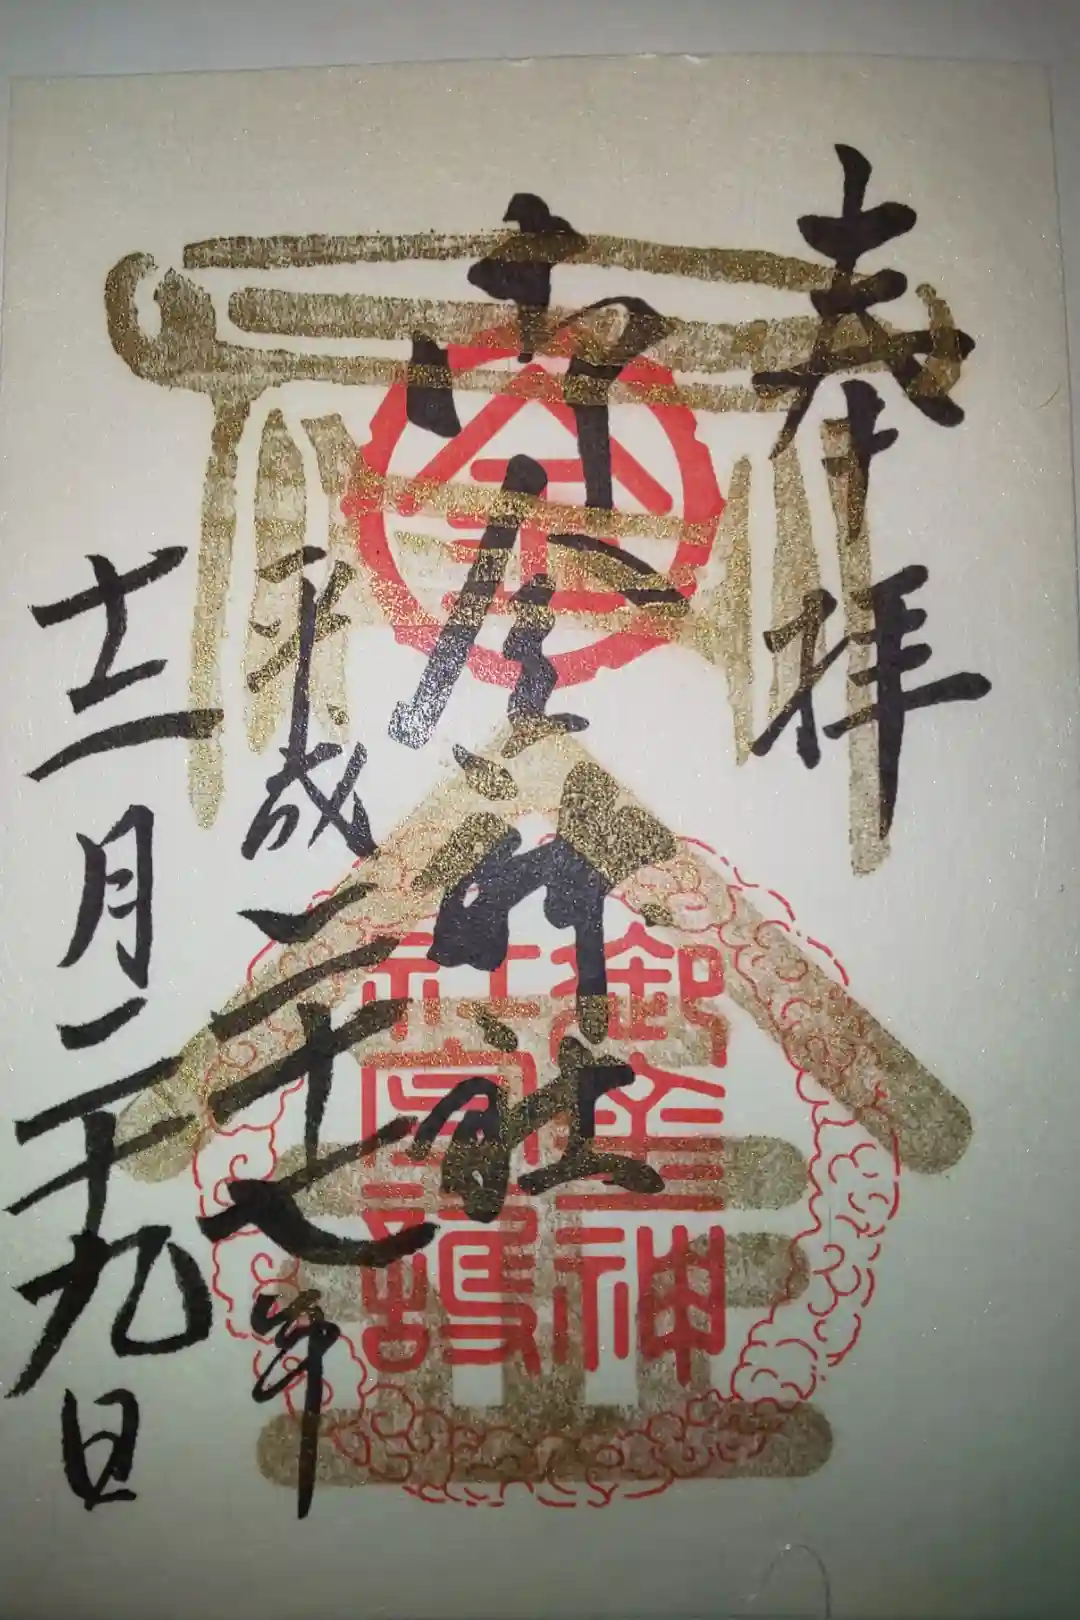 奉拝
御金神社
平成二十七年
十二月二十九日
金
御金神
社